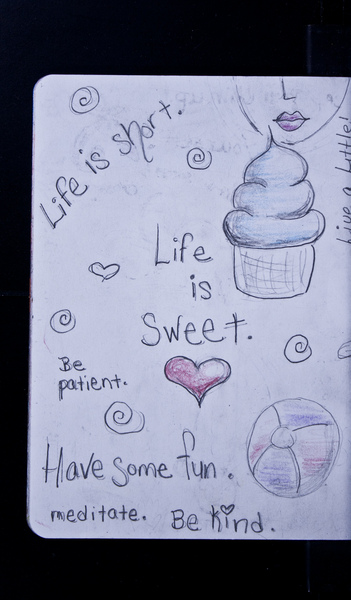 Life is short.
Live a little!
Life
is
Sweet.
Be
patient.
Have some fun.
meditate. Be Kind.